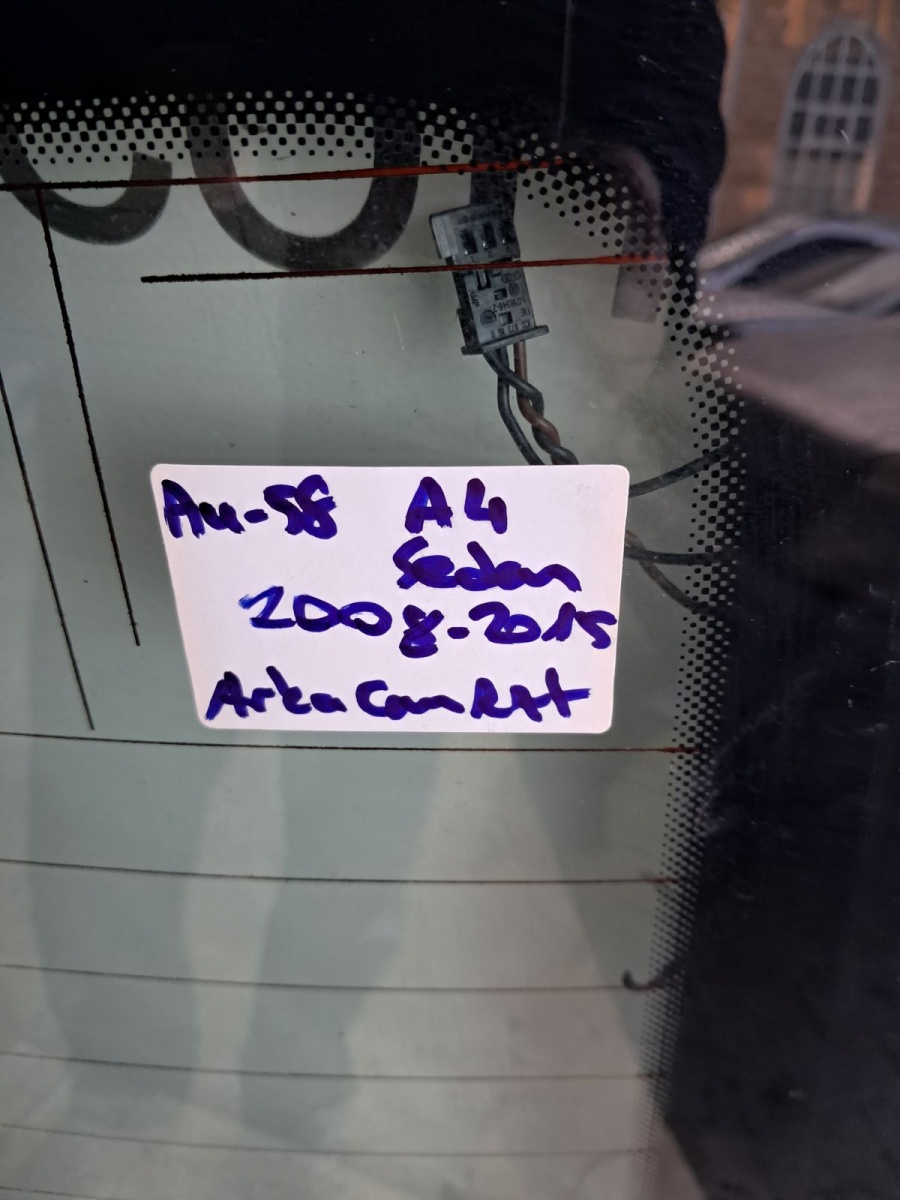 Au-58 A4
Sedan
2008-2015
Arka Cam Rzt